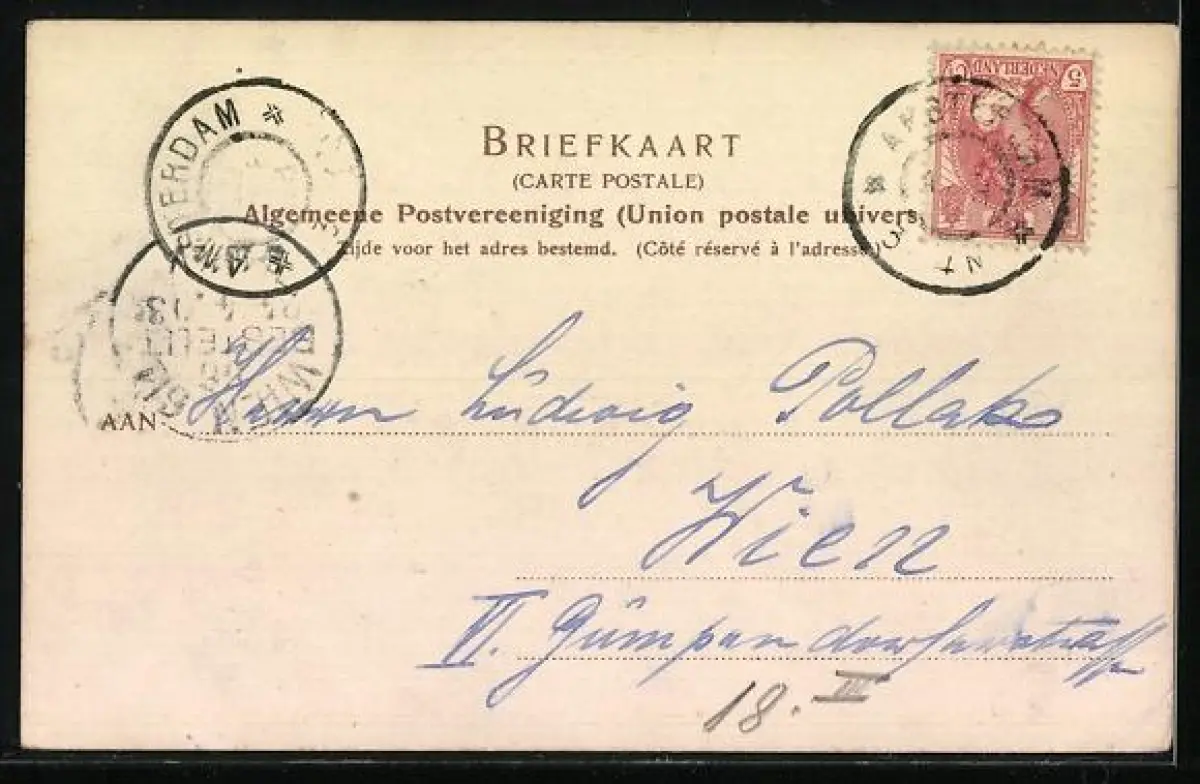 BRIEFKAART
(CARTE POSTALE)
Algemeene Postvereeniging (Union postale univers
Zijde voor het adres bestemd. (Côté réservé à l'adresse)
NEDERLAND
5
AMSTERDAM
TERDAM
WIEN
BESTELLT
AAN Herrn Ludwig Pollak
Wien
VI. Gumpendorferstrasse
18. III